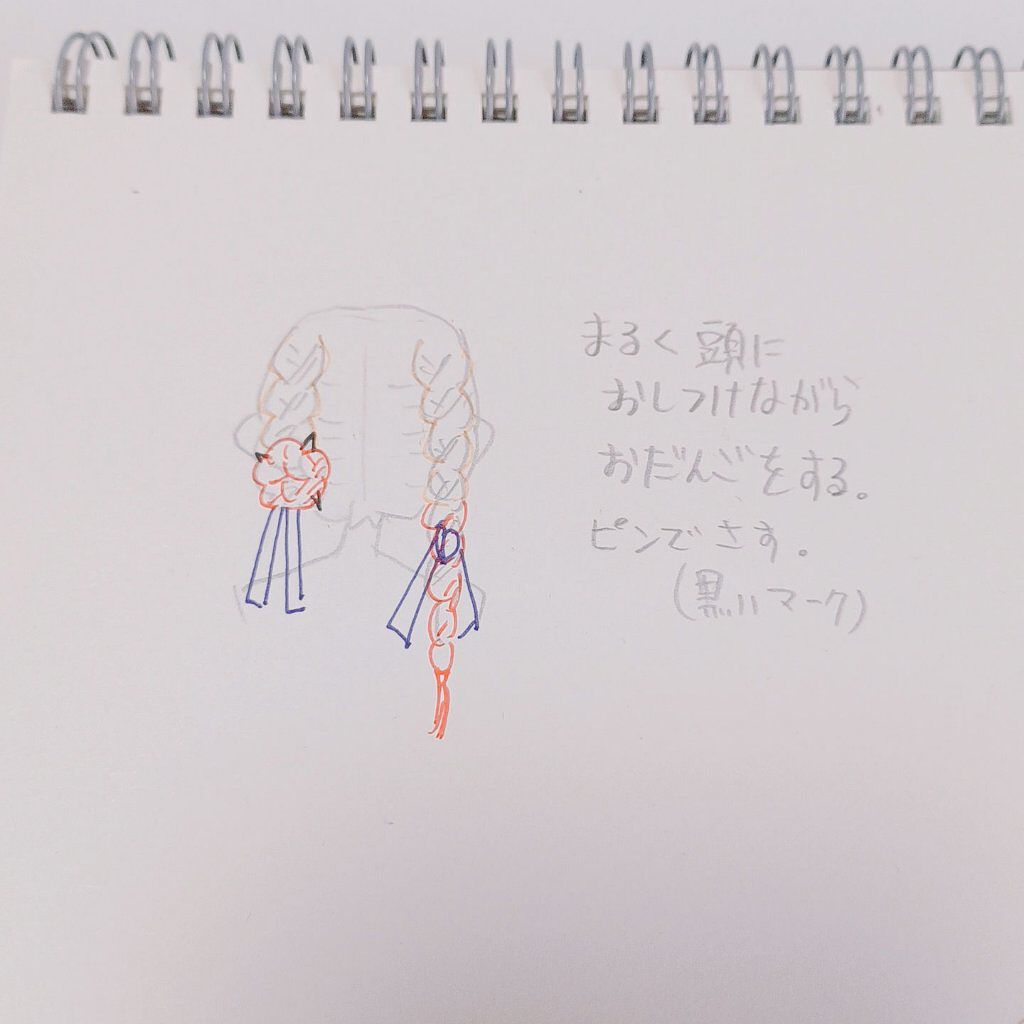 まるく頭に
おしつけながら
おだんごをする。
ピンでさす。
(黒いマーク)